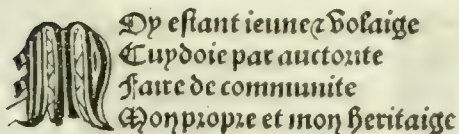 MOy eſtant ieune ⁊ volaige
Cuydoie par auctorite
Faire de communite
Mon propre et mon heritaige